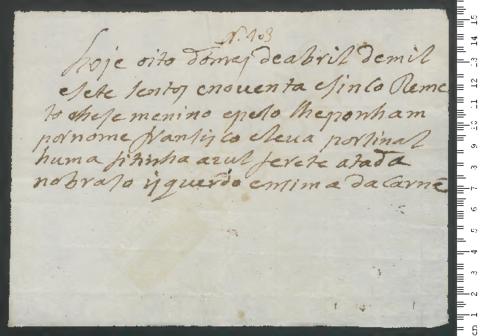 N. 103
hoje oito do mes de abril de mil
e sete sentos e noventa e sinco Reme
to ohese menino e peso lhe ponham
por nome fransisco e leva por sinal
huma fitinha azul ferete atada
no braso isquerdo em sima da Carne